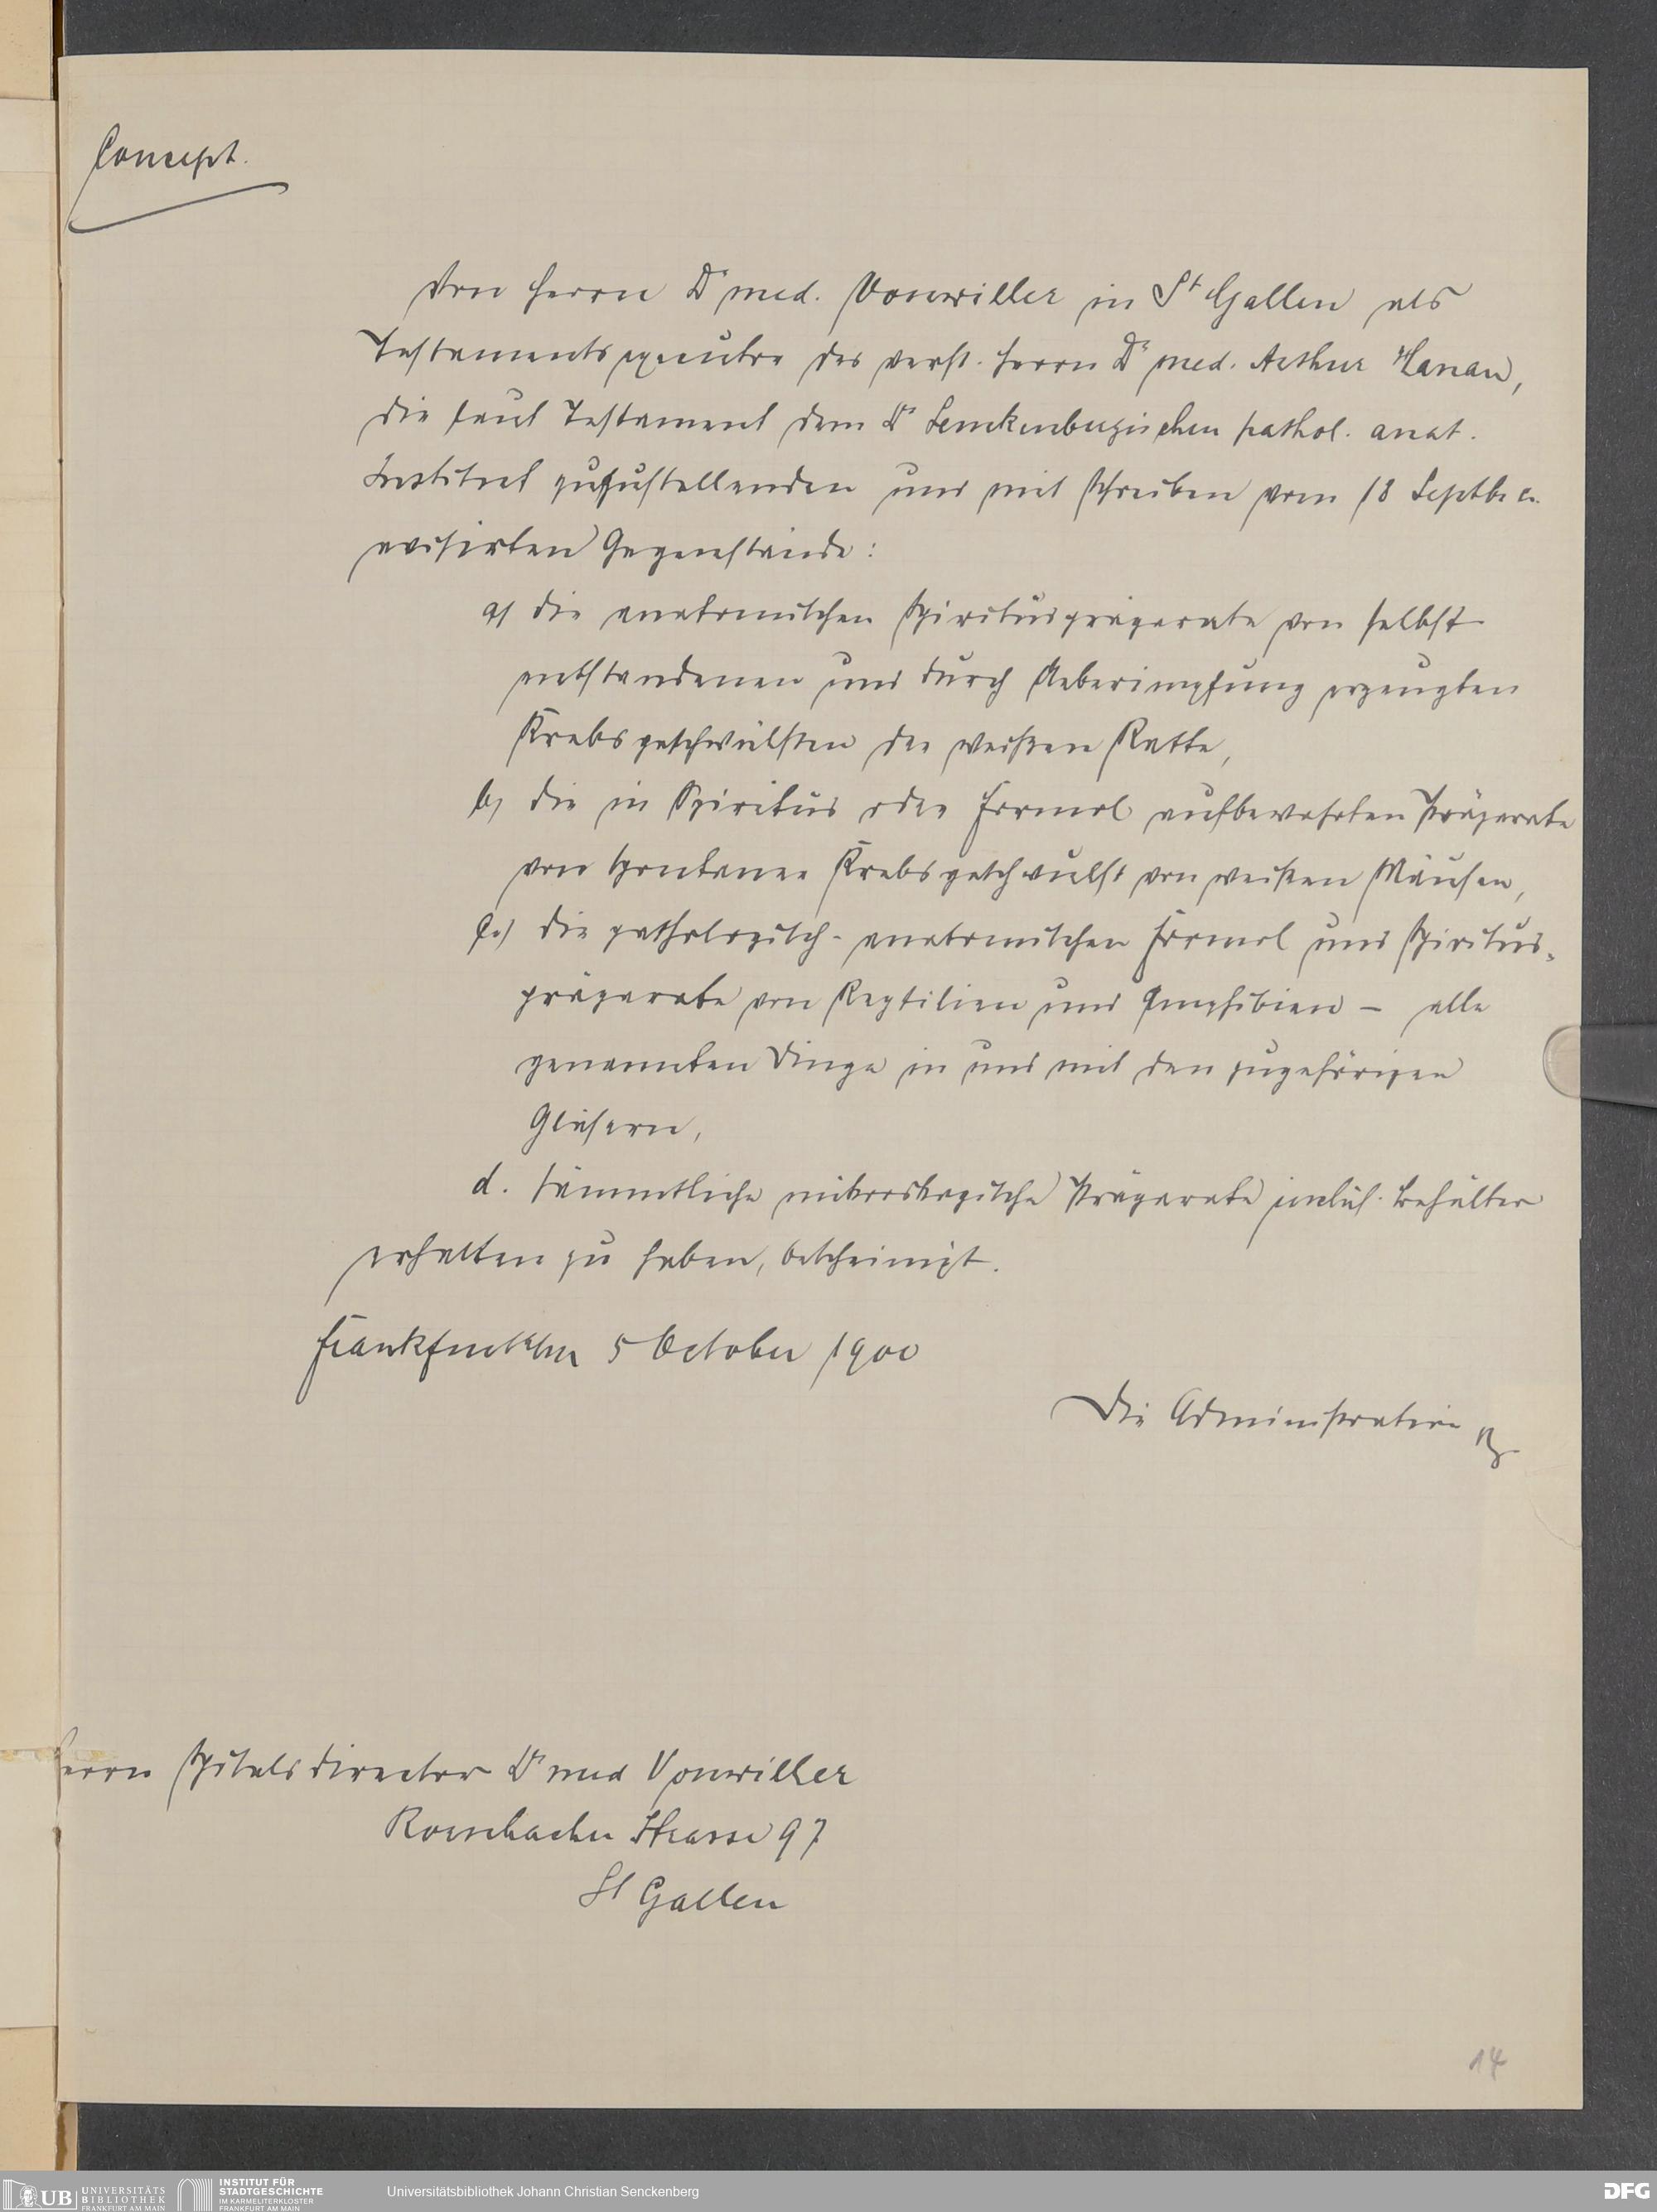 Concept.
Von Herrn Dr med. Vonwiller in St Gallen als
Testamentsexecutor des verst. Herrn Dr med. Arthur Hanau,
die laut Testament dem Dr Senckenbergischen pathol. anat.
Institut zuzustellenden und mit Schreiben vom 18 Septber.
avisirten Gegenstände:
a) die anatomischen Spirituspräparate von selbst
entstandenen und durch Ueberimpfung erzeugten
Krebsgeschwülsten der weißen Ratte,
b) die in Spiritus oder Formol aufbewahrten Präparate
von spontaner Krebsgeschwulst von weißen Mäusen,
c.) die pathologisch-anatomischen Formol und Spiritus-
präparate von Reptilien und Amphibien – alle
genannten Dinge in und mit den zugehörigen
Gläsern,
d. sämmtliche mikroskopische Präparate inclus. Behälter
erhalten zu haben, bescheinigt.
Frankfurt a/m 5 October 1900
Die Administration
Herrn Spitalsdirector Dr med Vonwiller
Rorschacher Strasse 97
St Gallen
14
UB UNIVERSITÄTS
BIBLIOTHEK
FRANKFURT AM MAIN
INSTITUT FÜR
STADTGESCHICHTE
IM KARMELITERKLOSTER
FRANKFURT AM MAIN
Universitätsbibliothek Johann Christian Senckenberg
DFG